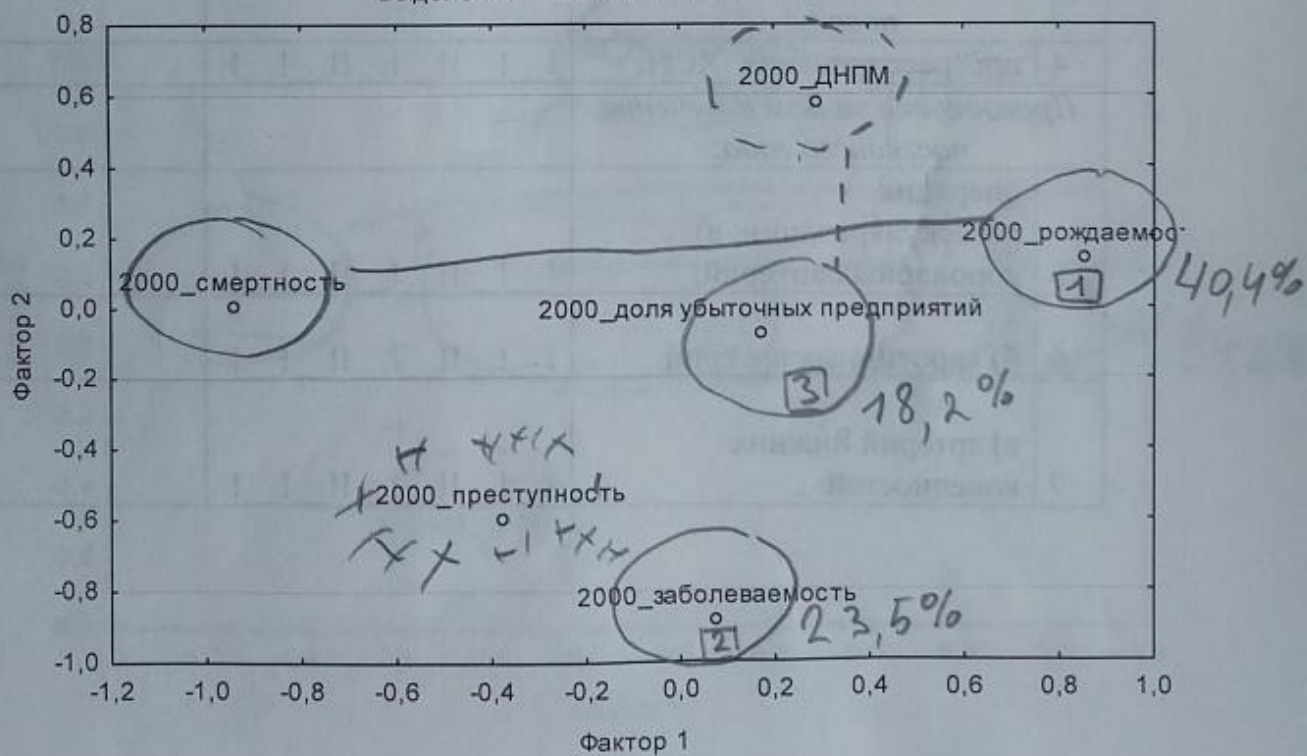 0,8
0,6
0,4
0,2
0,0
-0,2
-0,4
-0,6
-0,8
-1,0
Фактор 2
2000_ДНПМ
2000_рождаемос
1
40,4%
2000_смертность
2000_доля убыточных предприятий
3
18,2%
2000_преступность
2000_заболеваемость
2
23,5%
-1,2 -1,0 -0,8 -0,6 -0,4 -0,2 0,0 0,2 0,4 0,6 0,8 1,0
Фактор 1